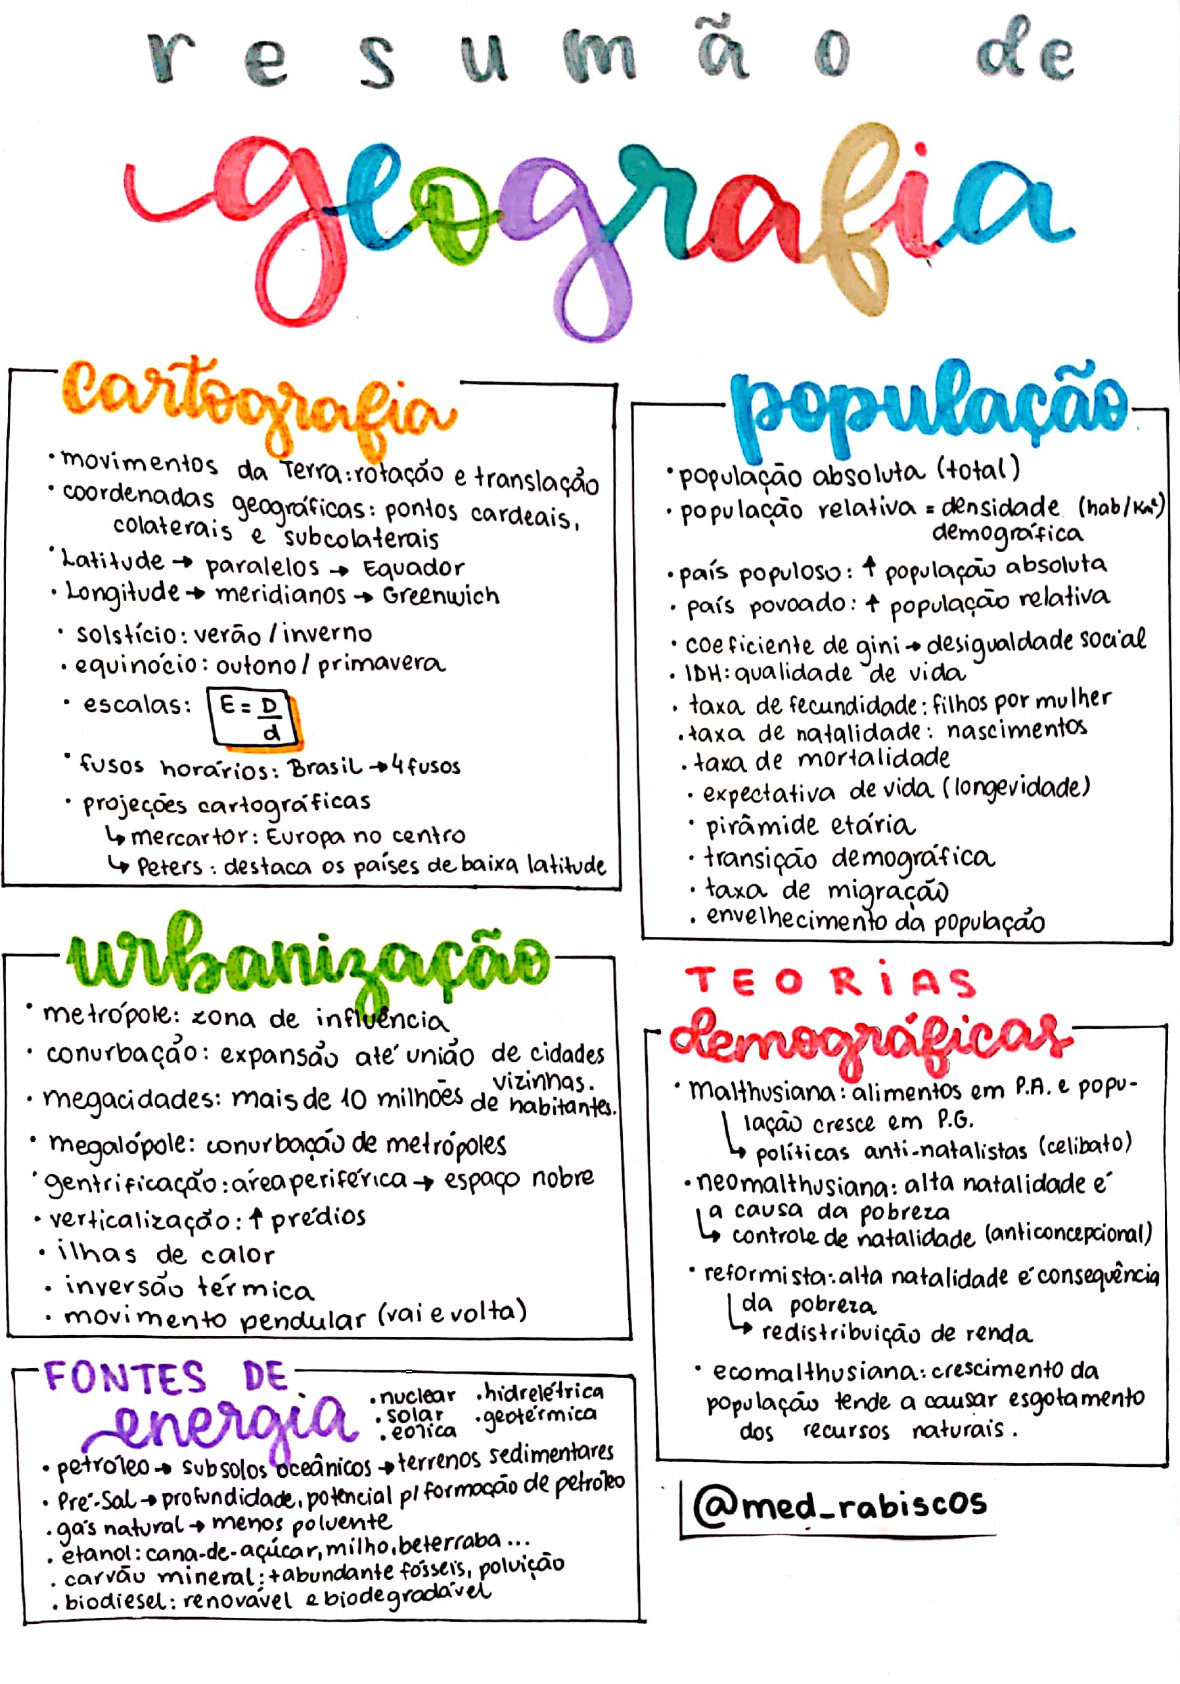 resumão de
geografia
cartografia
• movimentos da Terra: rotação e translação
• coordenadas geográficas: pontos cardeais,
colaterais e subcolaterais
• Latitude → paralelos → Equador
• Longitude → meridianos → Greenwich
• solstício: verão / inverno
• equinócio: outono / primavera
• escalas: E = D/d
• fusos horários: Brasil → 4 fusos
• projeções cartográficas
↳ mercartor: Europa no centro
↳ Peters: destaca os países de baixa latitude
população
• população absoluta (total)
• população relativa = densidade (hab/Km²)
demográfica
• país populoso: ↑ população absoluta
• país povoado: ↑ população relativa
• coeficiente de gini → desigualdade social
• IDH: qualidade de vida
• taxa de fecundidade: filhos por mulher
• taxa de natalidade: nascimentos
• taxa de mortalidade
• expectativa de vida (longevidade)
• pirâmide etária
• transição demográfica
• taxa de migração
• envelhecimento da população
urbanização
• metrópole: zona de influência
• conurbação: expansão até união de cidades
vizinhas.
• megacidades: mais de 10 milhões de habitantes.
• megalópole: conurbação de metrópoles
• gentrificação: área periférica → espaço nobre
• verticalização: ↑ prédios
• ilhas de calor
• inversão térmica
• movimento pendular (vai e volta)
TEORiAS
demográficas
• Malthusiana: alimentos em P.A. e popu-
lação cresce em P.G.
↳ políticas anti-natalistas (celibato)
• neomalthusiana: alta natalidade é
a causa da pobreza
↳ controle de natalidade (anticoncepcional)
• reformista: alta natalidade é consequência
da pobreza
↳ redistribuição de renda
• ecomalthusiana: crescimento da
população tende a causar esgotamento
dos recursos naturais.
FONTES DE
energia
• nuclear • hidrelétrica
• solar • geotérmica
• eólica
• petróleo → subsolos oceânicos → terrenos sedimentares
• Pré-Sal → profundidade, potencial p/ formação de petróleo
• gás natural → menos poluente
• etanol: cana-de-açúcar, milho, beterraba...
• carvão mineral: + abundante fósseis, poluição
• biodiesel: renovável e biodegradável
@med_rabiscos